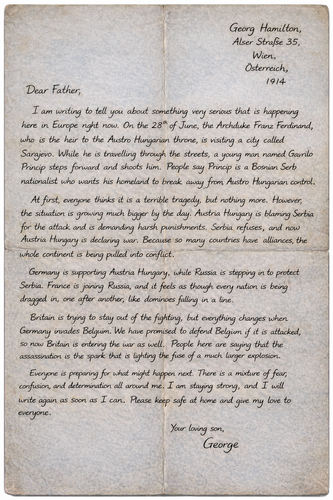 Georg Hamilton,
Alser Straße 35,
Wien,
Österreich,
1914
Dear Father,
I am writing to tell you about something very serious that is happening
here in Europe right now. On the 28th of June, the Archduke Franz Ferdinand,
who is the heir to the Austro Hungarian throne, is visiting a city called
Sarajevo. While he is travelling through the streets, a young man named Gavrilo
Princip steps forward and shoots him. People say Princip is a Bosnian Serb
nationalist who wants his homeland to break away from Austro Hungarian control.
At first, everyone thinks it is a terrible tragedy, but nothing more. However,
the situation is growing much bigger by the day. Austria Hungary is blaming Serbia
for the attack and is demanding harsh punishments. Serbia refuses, and now
Austria Hungary is declaring war. Because so many countries have alliances, the
whole continent is being pulled into conflict.
Germany is supporting Austria Hungary, while Russia is stepping in to protect
Serbia. France is joining Russia, and it feels as though every nation is being
dragged in, one after another, like dominoes falling in a line.
Britain is trying to stay out of the fighting, but everything changes when
Germany invades Belgium. We have promised to defend Belgium if it is attacked,
so now Britain is entering the war as well. People here are saying that the
assassination is the spark that is lighting the fuse of a much larger explosion.
Everyone is preparing for what might happen next. There is a mixture of fear,
confusion, and determination all around me. I am staying strong, and I will
write again as soon as I can. Please keep safe at home and give my love to
everyone.
Your loving son,
George